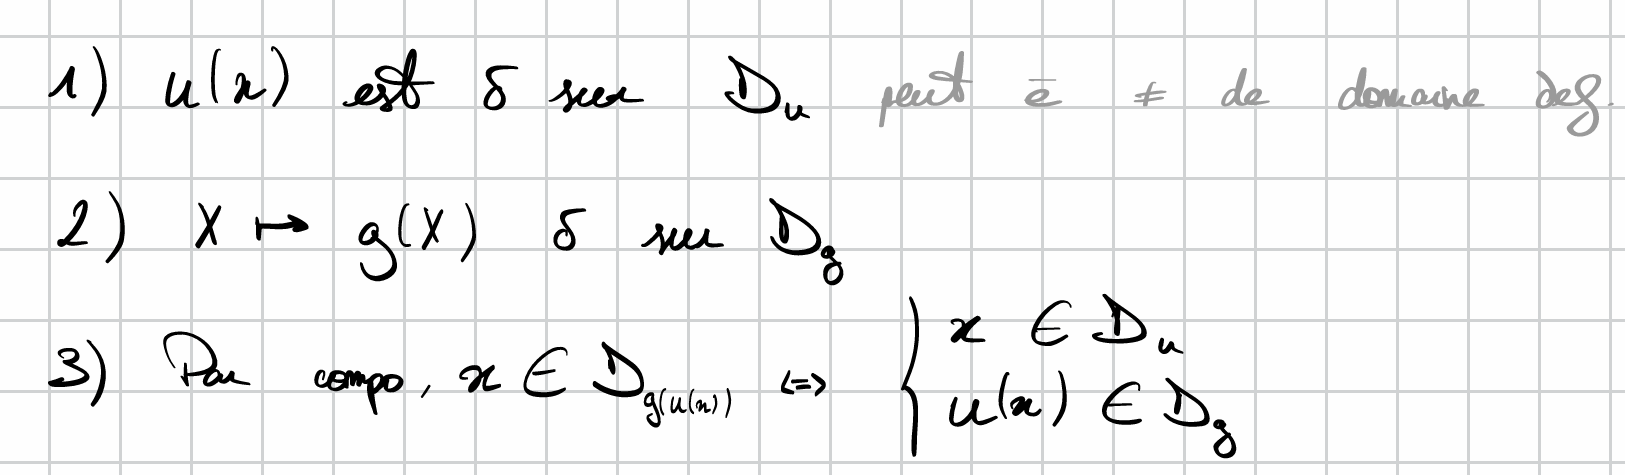 1) u(x) est δ sur Dᵤ peut ē ≠ de domaine def.
2) X ↦ g(X) δ sur D_g
3) Par compo, x ∈ D_g(u(x)) <=> { x ∈ Dᵤ
u(x) ∈ D_g